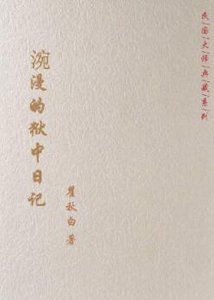 民国大师典藏系列
瞿秋白 著
涴漫的狱中日记